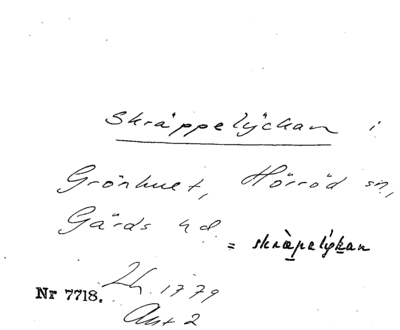 Skräppelÿckan i
Grönhuet, Hörröd sn,
Gärds hd
= skräpelýkan
Nr 7718.
Lh. 1779
Akt 2